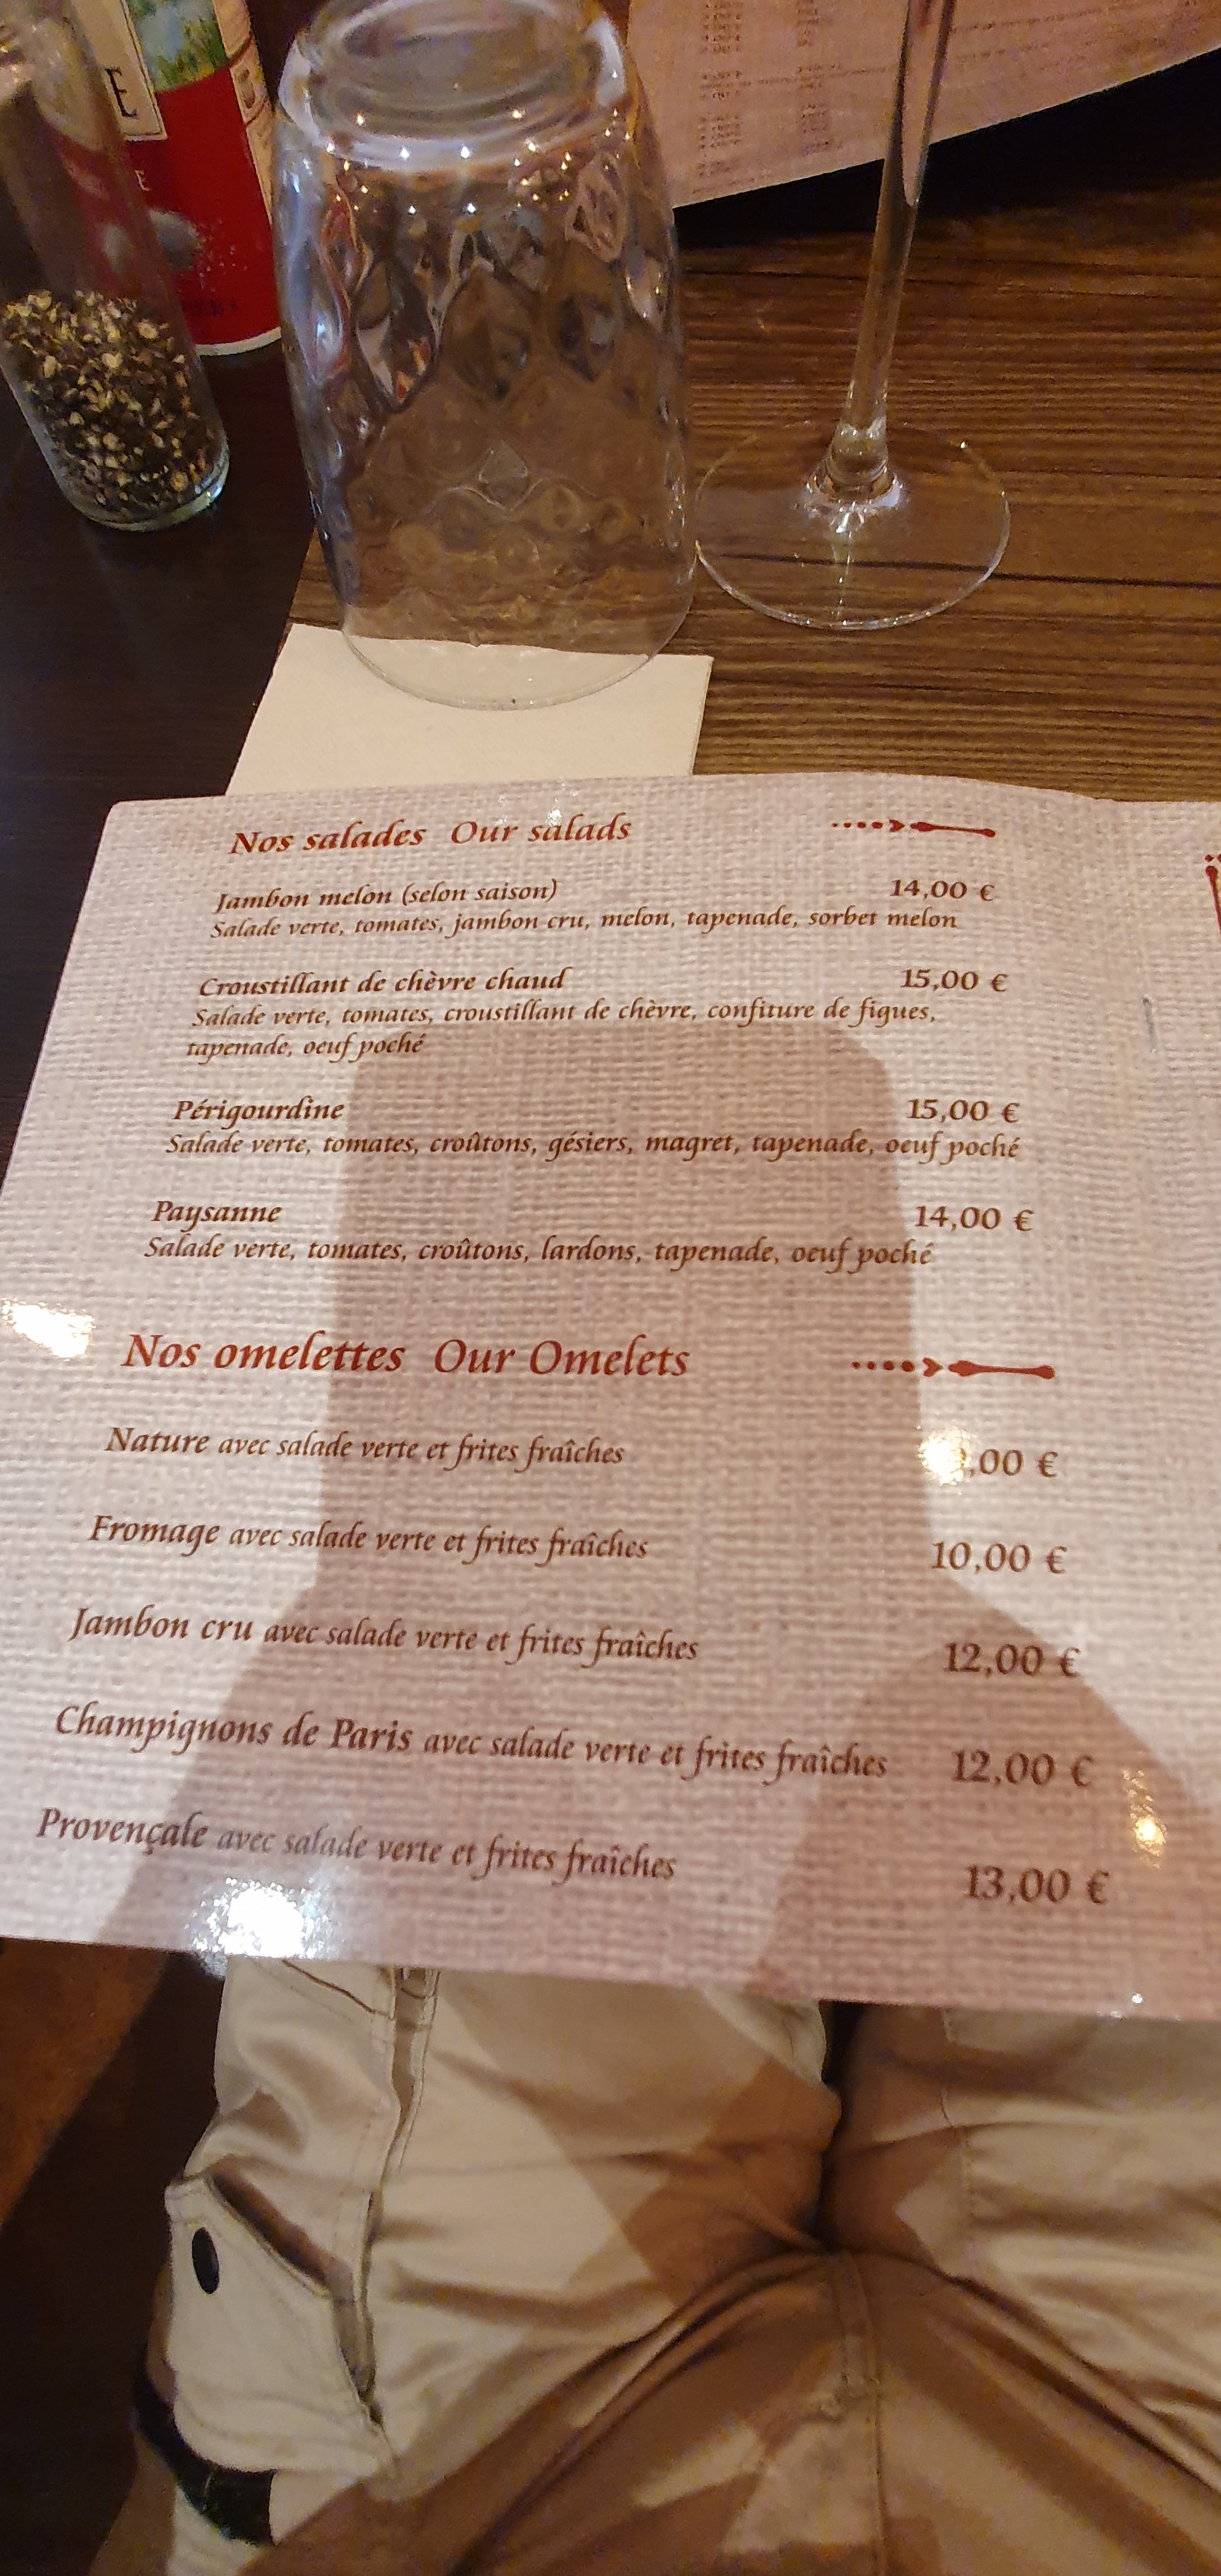 E
E
Nos salades Our salads
Jambon melon (selon saison) 14,00 €
Salade verte, tomates, jambon cru, melon, tapenade, sorbet melon
Croustillant de chèvre chaud 15,00 €
Salade verte, tomates, croustillant de chèvre, confiture de figues,
tapenade, oeuf poché
Périgourdine 15,00 €
Salade verte, tomates, croûtons, gésiers, magret, tapenade, oeuf poché
Paysanne 14,00 €
Salade verte, tomates, croûtons, lardons, tapenade, oeuf poché
Nos omelettes Our Omelets
Nature avec salade verte et frites fraîches ,00 €
Fromage avec salade verte et frites fraîches 10,00 €
Jambon cru avec salade verte et frites fraîches 12,00 €
Champignons de Paris avec salade verte et frites fraîches 12,00 €
Provençale avec salade verte et frites fraîches 13,00 €